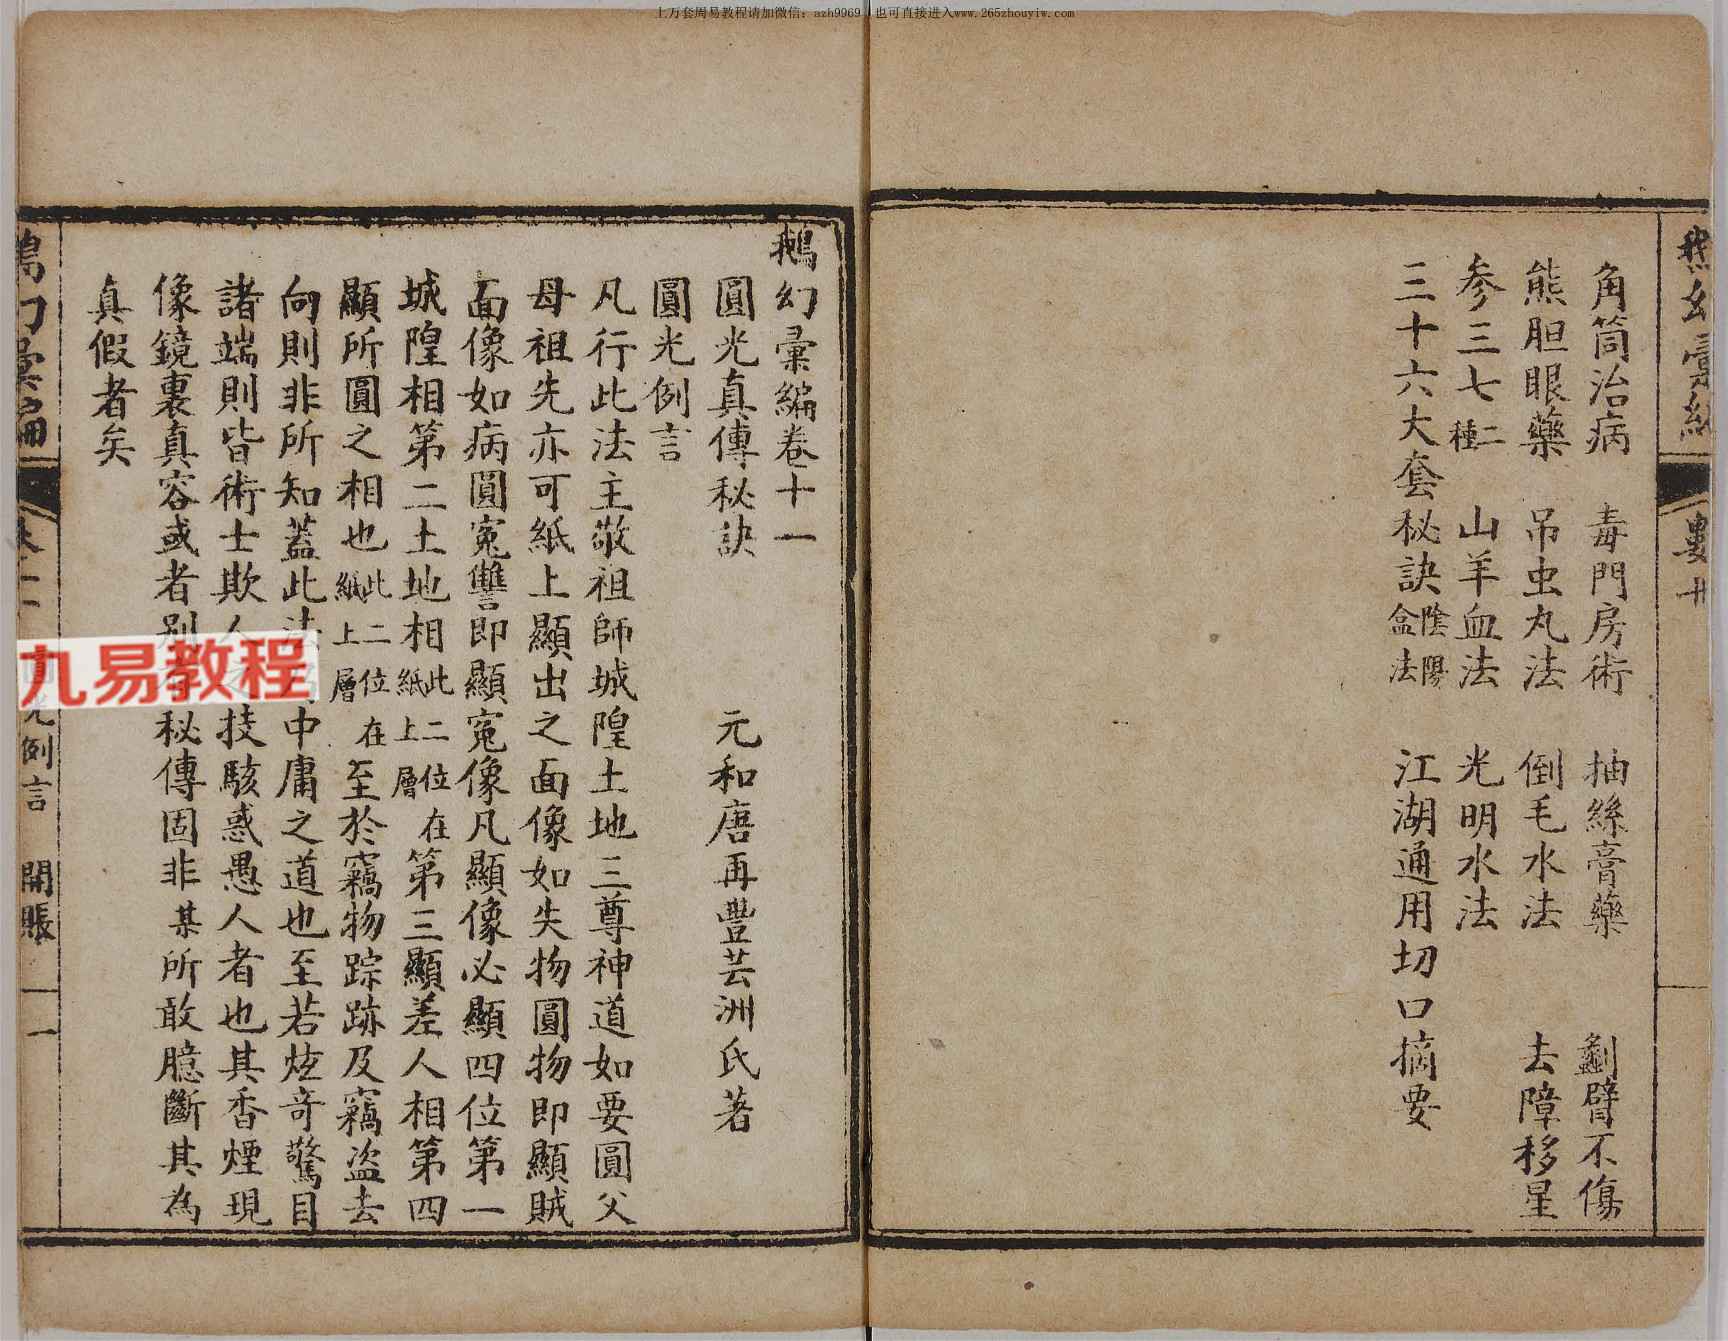 上万套周易教程请加微信：azh9969 也可直接进入www.265zhouyiw.com
角筒治病　毒門房術　抽絲膏藥　劙臂不傷
熊胆眼藥　吊虫丸法　倒毛水法　去障移星
参三七二種　山羊血法　光明水法
三十六大套秘訣陰陽盒法　江湖通用切口摘要
鵝幻彙編卷十一
圓光真傳秘訣　元和唐再豐芸洲氏著
圓光例言
凡行此法主敬祖師城隍土地三尊神道如要圓父
母祖先亦可紙上顯出之面像如失物圓物即顯賊
面像如病圓寃讐即顯寃像凡顯像必顯四位第一
城隍相第二土地相此二位在紙上層第三顯差人相第四
顯所圓之相也此二位在紙上層至於竊物踪跡及竊盗去
向則非所知蓋此法中庸之道也至若炫竒驚目
諸端則皆術士欺人技駭惑愚人者也其香煙現
像鏡裏真容或者别有秘傳固非某所敢臆斷其為
真假者矣
鵝幻彙編
例言　開賬　一
九易教程